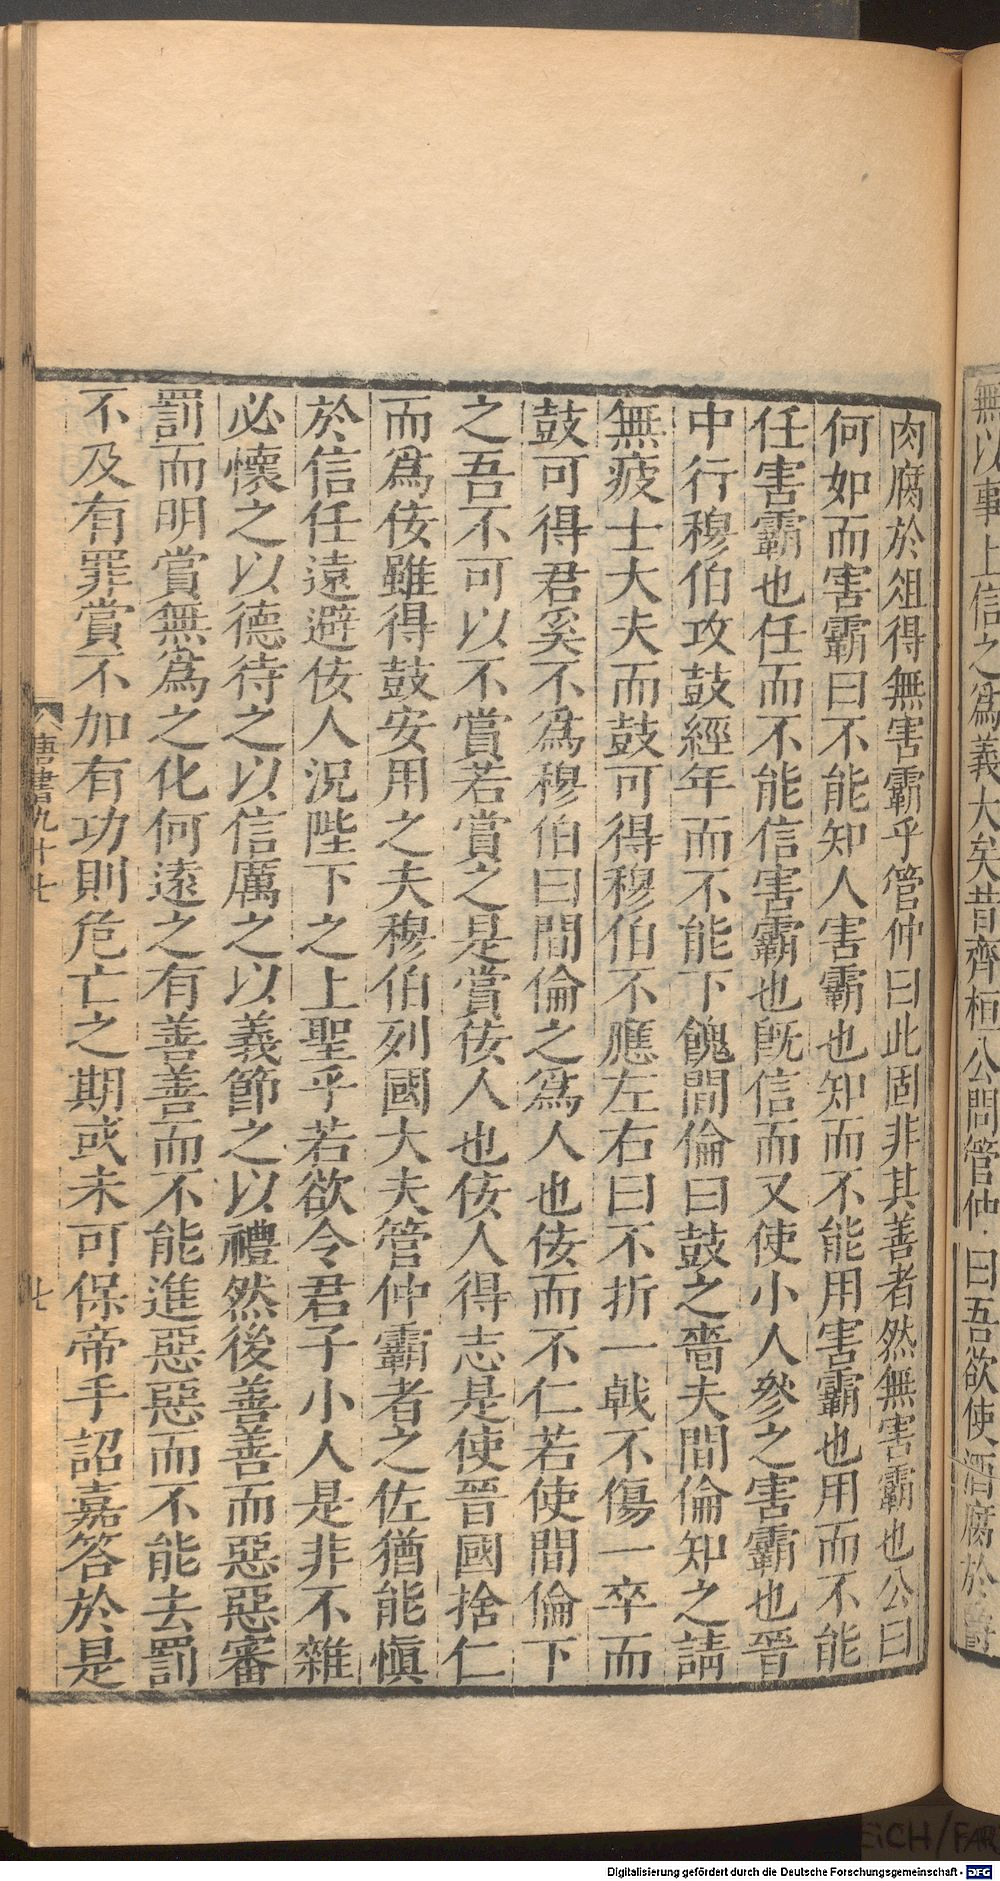 無以事上信之爲義大矣昔齊桓公問管仲曰吾欲使酒腐於爵
肉腐於俎得無害霸乎管仲曰此固非其善者然無害霸也公曰
何如而害霸曰不能知人害霸也知而不能用害霸也用而不能
任害霸也任而不能信害霸也旣信而又使小人參之害霸也晉
中行穆伯攻鼓經年而不能下餽間倫曰鼓之嗇夫間倫知之請
無疲士大夫而鼓可得穆伯不應左右曰不折一戟不傷一卒而
鼓可得君奚不爲穆伯曰間倫之爲人也佞而不仁若使間倫下
之吾不可以不賞若賞之是賞佞人也佞人得志是使晉國捨仁
而爲佞雖得鼓安用之夫穆伯列國大夫管仲霸者之佐猶能愼
於信任遠避佞人況陛下之上聖乎若欲令君子小人是非不雜
必懷之以德待之以信厲之以義節之以禮然後善善而惡惡審
罰而明賞無爲之化何遠之有善善而不能進惡惡而不能去罰
不及有罪賞不加有功則危亡之期或未可保帝手詔嘉答於是
唐書九十七
七
EICH/FAR
Digitalisierung gefördert durch die Deutsche Forschungsgemeinschaft - DFG